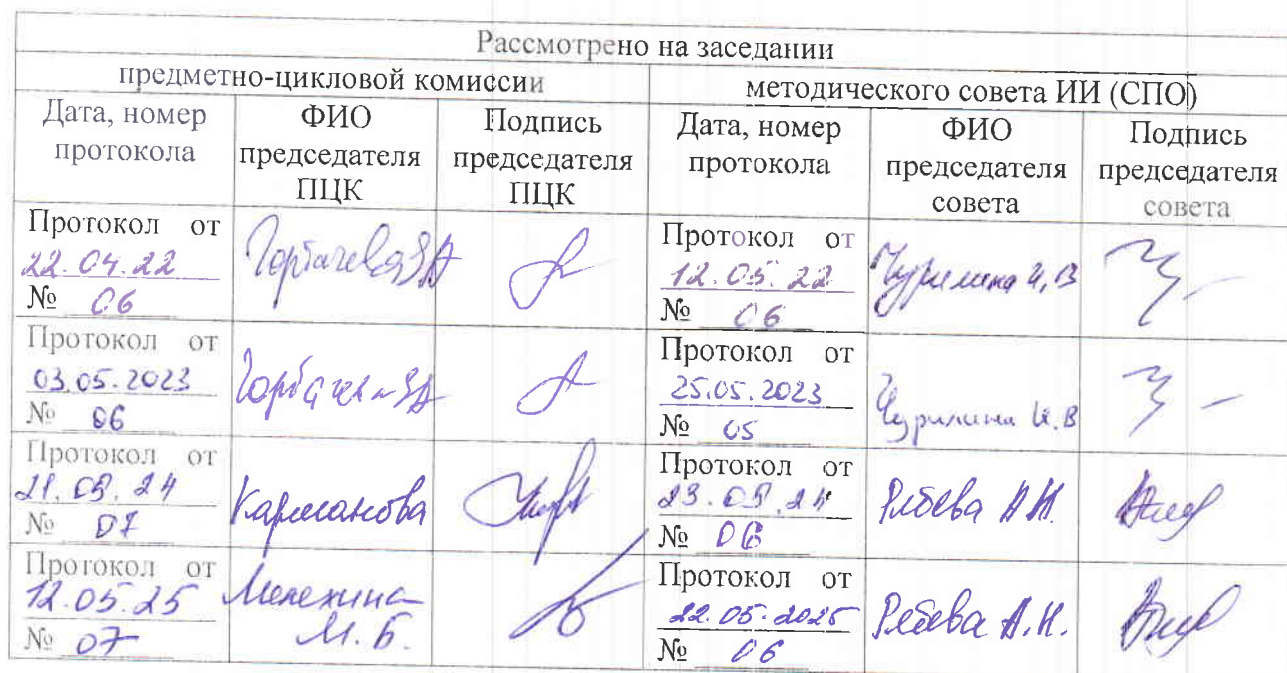 Рассмотрено на заседании
предметно-цикловой комиссии
методического совета ИИ (СПО)
Дата, номер
протокола
ФИО
председателя
ПЦК
Подпись
председателя
ПЦК
Дата, номер
протокола
ФИО
председателя
совета
Подпись
председателя
совета
Протокол от
22.04.22
№ 06
Горбачева ЗА
Протокол от
12.05.22
№ 06
Чурилина И,В
Протокол от
03.05.2023
№ 06
Горбачева ЗА
Протокол от
25.05.2023
№ 05
Чурилина И.В
Протокол от
21.05.24
№ 07
Карманова
Протокол от
23.05.24
№ 06
А.Н.
Протокол от
12.05.25
№ 07
М.Б.
Протокол от
22.05.2025
№ 06
А.Н.